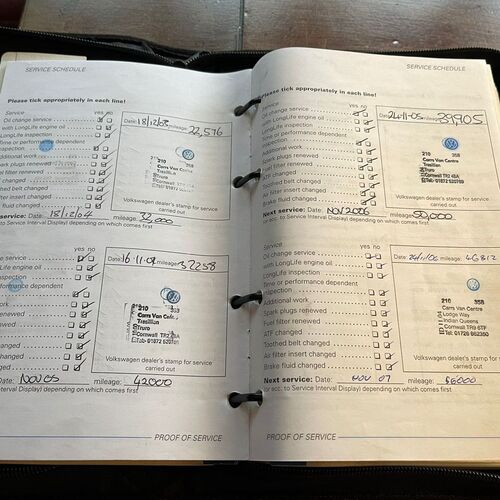 SERVICE SCHEDULE
Please tick appropriately in each line!
Service yes no
Oil change service
with LongLife engine oil
LongLife inspection
Time or performance dependent
inspection
Additional work
plugs renewed
filter renewed
changed
belt changed
insert changed
fluid changed
Date: 18/12/03 mileage: 22,576
Carrs Van Centre
Tresillian
Truro
Cornwall
Volkswagen dealer's stamp for service
carried out
service: Date: 18/12/04 mileage: 32,000
to Service Interval Display) depending on which comes first
yes no
change service
LongLife engine oil
inspection
performance dependent
work
renewed
renewed
changed
changed
changed
changed
Date: 16.11.04 mileage: 32258
210 358
Carrs Van
Tresillian
Truro
Cornwall TR2 4BA
Tel: 01872
Volkswagen dealer's stamp for service
carried out
Date: NOV 05 mileage: 42000
Interval Display) depending on which comes first
PROOF OF SERVICE
SERVICE SCHEDULE
Please tick appropriately in each line!
Service yes no
Oil change service
with LongLife engine oil
LongLife inspection
Time or performance dependent
inspection
Additional work
Spark plugs renewed
Fuel filter renewed
ATF changed
Toothed belt changed
Air filter insert changed
Brake fluid changed
Date: 24-11-05 mileage: 39,905
210 358
Carrs Van Centre
Tresillian
Truro
Cornwall TR2 4BA
Tel: 01872
Volkswagen dealer's stamp for service
carried out
Next service: Date: NOV 2006 mileage: 50,000
(or acc. to Service Interval Display) depending on which comes first
Service yes no
Oil change service
with LongLife engine oil
LongLife inspection
Time or performance dependent
inspection
Additional work
Spark plugs renewed
Fuel filter renewed
ATF changed
Toothed belt changed
Air filter insert changed
Brake fluid changed
Date: 24/11/06 mileage: 46812
210 358
Carrs Van Centre
Lodge Way
Indian Queens
Cornwall TR9 6TF
Tel: 01726 862350
Volkswagen dealer's stamp for service
carried out
Next service: Date: NOV 07 mileage: 56000
(or acc. to Service Interval Display) depending on which comes first
PROOF OF SERVICE